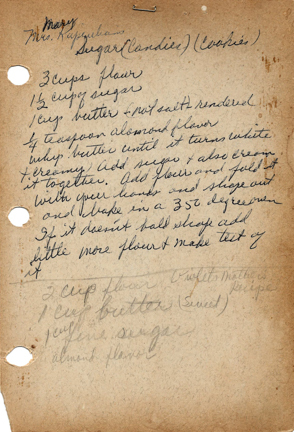 Mary
Mrs.
Sugar (Candies) (Cookies)
3 cups flour
1½ cups sugar
1 cup butter - not salt - rendered
¼ teaspoon alamond flavor
whip butter until it turns white
+ creamy add sugar + also cream
it together. Add flour and fold it
with your hands and shape out
and bake in a 350 degree oven
If it doesn't hold shape add
little more flour & make test of
it
3 cup flour Violet Mother's
recipe
1 cup butter (Sweet)
1 cup fine sugar
almond flavor